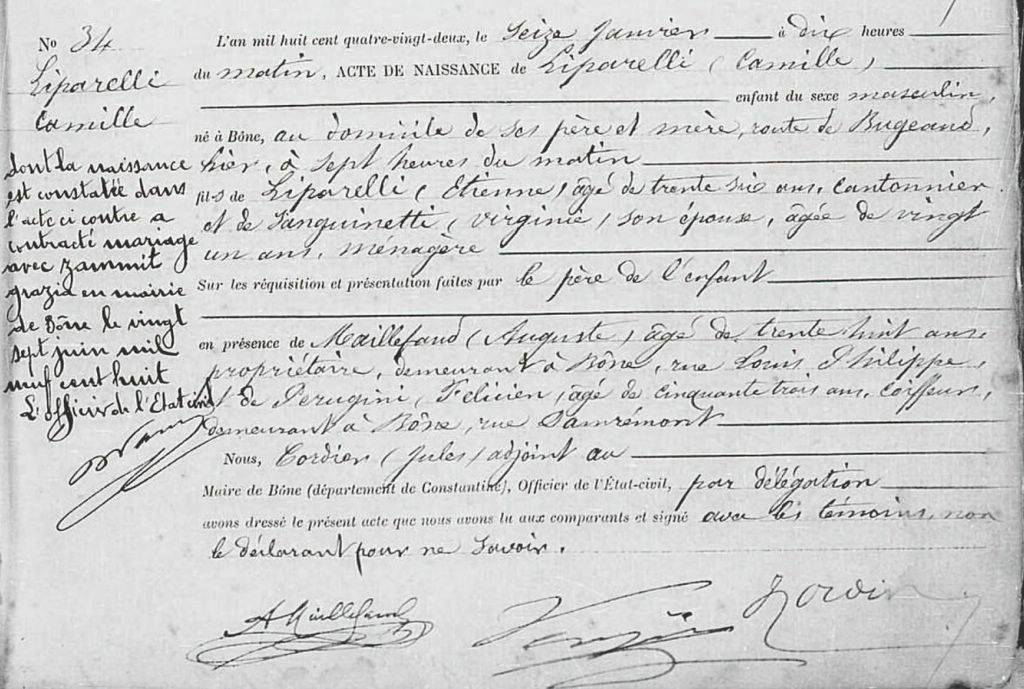 No 34
Liparelli
Camille
dont la naissance
est constatée dans
l'acte ci contre a
contracté mariage
avec Zammit
grazia en mairie
de Bône le vingt
sept juin mil
neuf cent huit
L'officier de l'Etat civil
L'an mil huit cent quatre-vingt-deux, le Seize Janvier à dix heures
du matin, ACTE DE NAISSANCE de Liparelli (Camille)
enfant du sexe masculin,
né à Bône, au domicile de ses père et mère, route de Bugeaud,
hier, à sept heures du matin
fil-s de Liparelli (Etienne) âgé de trente six ans, cantonnier
et de Sanguinetti (Virginie) son épouse, âgée de vingt
un ans, ménagère
Sur les réquisition et présentation faites par le père de l'enfant
en présence de Maillefaud (Auguste) âgé de trente huit ans
propriétaire, demeurant à Bône, rue Louis Philippe,
et de Perugini (Felicien) âgé de cinquante trois ans, Coiffeur,
demeurant à Bône, rue Damrémont
Nous, Cordier (Jules) adjoint au
Maire de Bône (département de Constantine), Officier de l'État-civil, par délégation
avons dressé le présent acte que nous avons lu aux comparants et signé avec les témoins, non
le déclarant pour ne savoir.
A Maillefaud